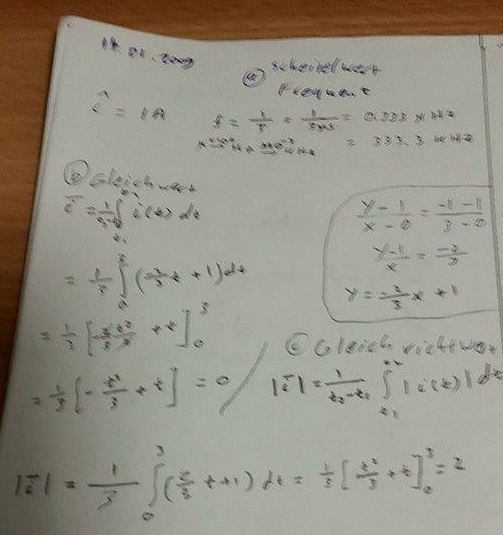 ⓐ Scheitelwert
Frequent
î = 1A
f = 1/T = 1/3ms = 0.333 kHz
= 333.3 mHz
ⓑ Gleichwert
i̅ = 1/(t₂-t₁) ∫ i(t) dt
= 1/3 ∫₀³ (-2/3 t + 1) dt
= 1/3 [-2/3 t²/2 + t]₀³
= 1/3 [-t²/3 + t] = 0
(y - 1)/(x - 0) = (-1 - 1)/(3 - 0)
(y-1)/x = -2/3
y = -2/3 x + 1
ⓒ Gleichrichtwert
|i̅| = 1/(t₂-t₁) ∫ |i(t)| dt
|i̅| = 1/3 ∫₀³ (2/3 t + 1) dt = 1/3 [t²/3 + t]₀³ = 2